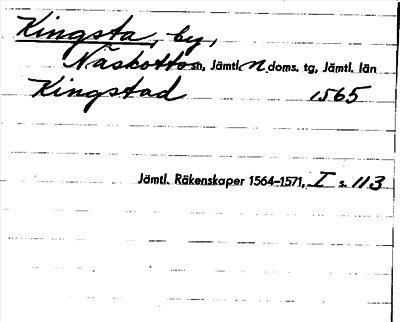 Kingsta, by,
Näskotts sn, Jämtl. n doms. tg, Jämtl. län
Kingstad 1565
Jämtl. Räkenskaper 1564–1571, I s. 113